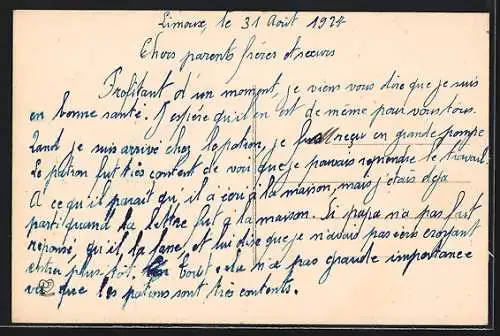 Limoux, le 31 Août 1924
Chers parents frères et sœurs
Profitant d'un moment, je viens vous dire que je suis
en bonne santé. J'espère qu'il en est de même pour vous tous.
Tand je suis arrivé chez le patron, je fus reçu en grande pompe
Le patron fut très content de voir que je pouvais reprendre le travail.
A ce qu'il paraît qu'il a écrit à la maison, mais j'étais déjà
parti quand la lettre fut à la maison. Si papa n'a pas fait
réponse, qu'il la fasse, et lui dise que je n'avais pas écrit croyant
entrer plus tôt. Tout cela n'a pas grande importance
vu que les patrons sont très contents.